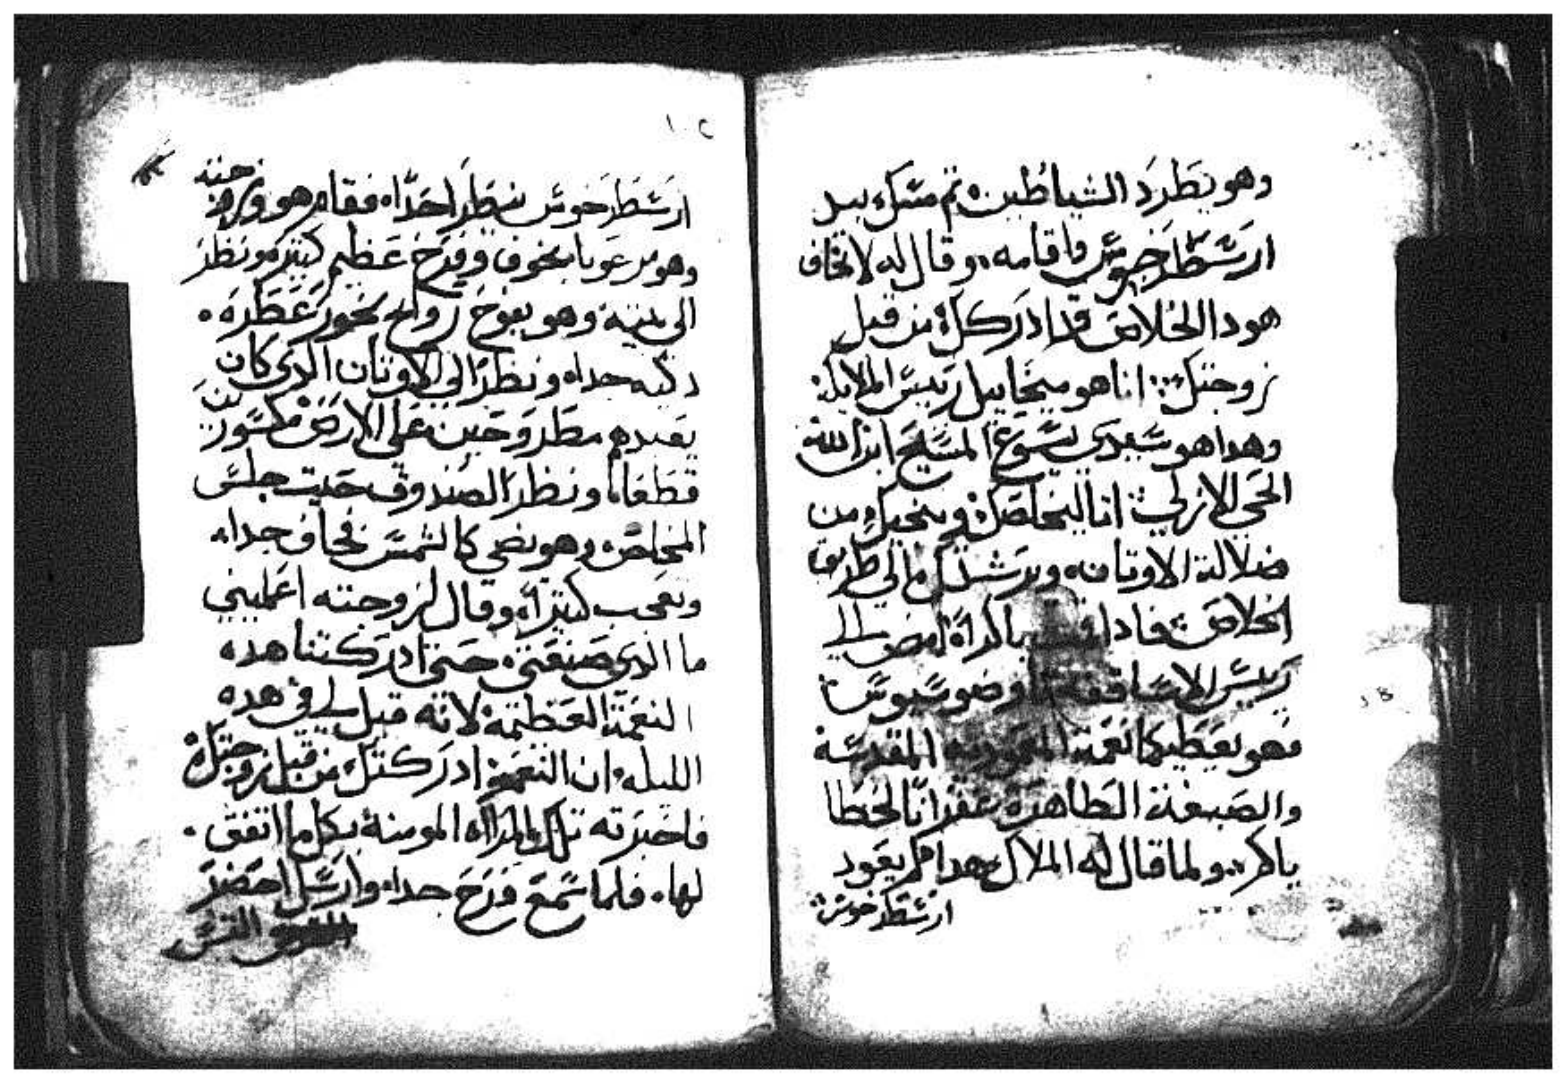 وهو يطرد الشياطين ثم مسك بيد
ارسطاخوس واقامه وقال له لا تخاف
هودا الخلاص قد ادركك من قبل
زوجتك انا هو ميخاييل رييس الملايكة
وهدا هو سيدي يسوع المسيح ابن الله
الحي الازلي اتا ليخلصك وينجيك من
ضلالة الاوتان ويرشدكم الي طريق
الخلاص فادا باكرا امض الي
رييس الاساقفة
فهو يعطيكما نعمة المعمودية المقدسة
والصبغة الطاهرة غفرانا لخطا
ياكم ولما قال له الملاك هدا لم يعود
ارسطرخوس
١٠٢
ارسطرخوس ينظر احدا فقام هو وزوجته
وهو مرعوبا بخوف وفرح عظيم كتير ونظر
الي بيته وهو يفوح روايح بخور عطره
دكيه جدا ونظر الي الاوتان الدي كان
يعبدهم مطروحين علي الارض مكسورين
قطعا ونظر الصندوق حيت جلس
المخلص وهو يضي كالشمس فخاف جدا
وتعجب كتيرا وقال لزوجته اعلميني
ما الدي صنعتي حتي ادركتنا هده
النعمة العظيمة لانه قيل لي في هده
الليله ان النعمة ادركتك من قبل زوجتك
فاخبرته تلك المراه المومنة بكل ما اتفق
لها فلما سمع فرح جدا وارسل احضر